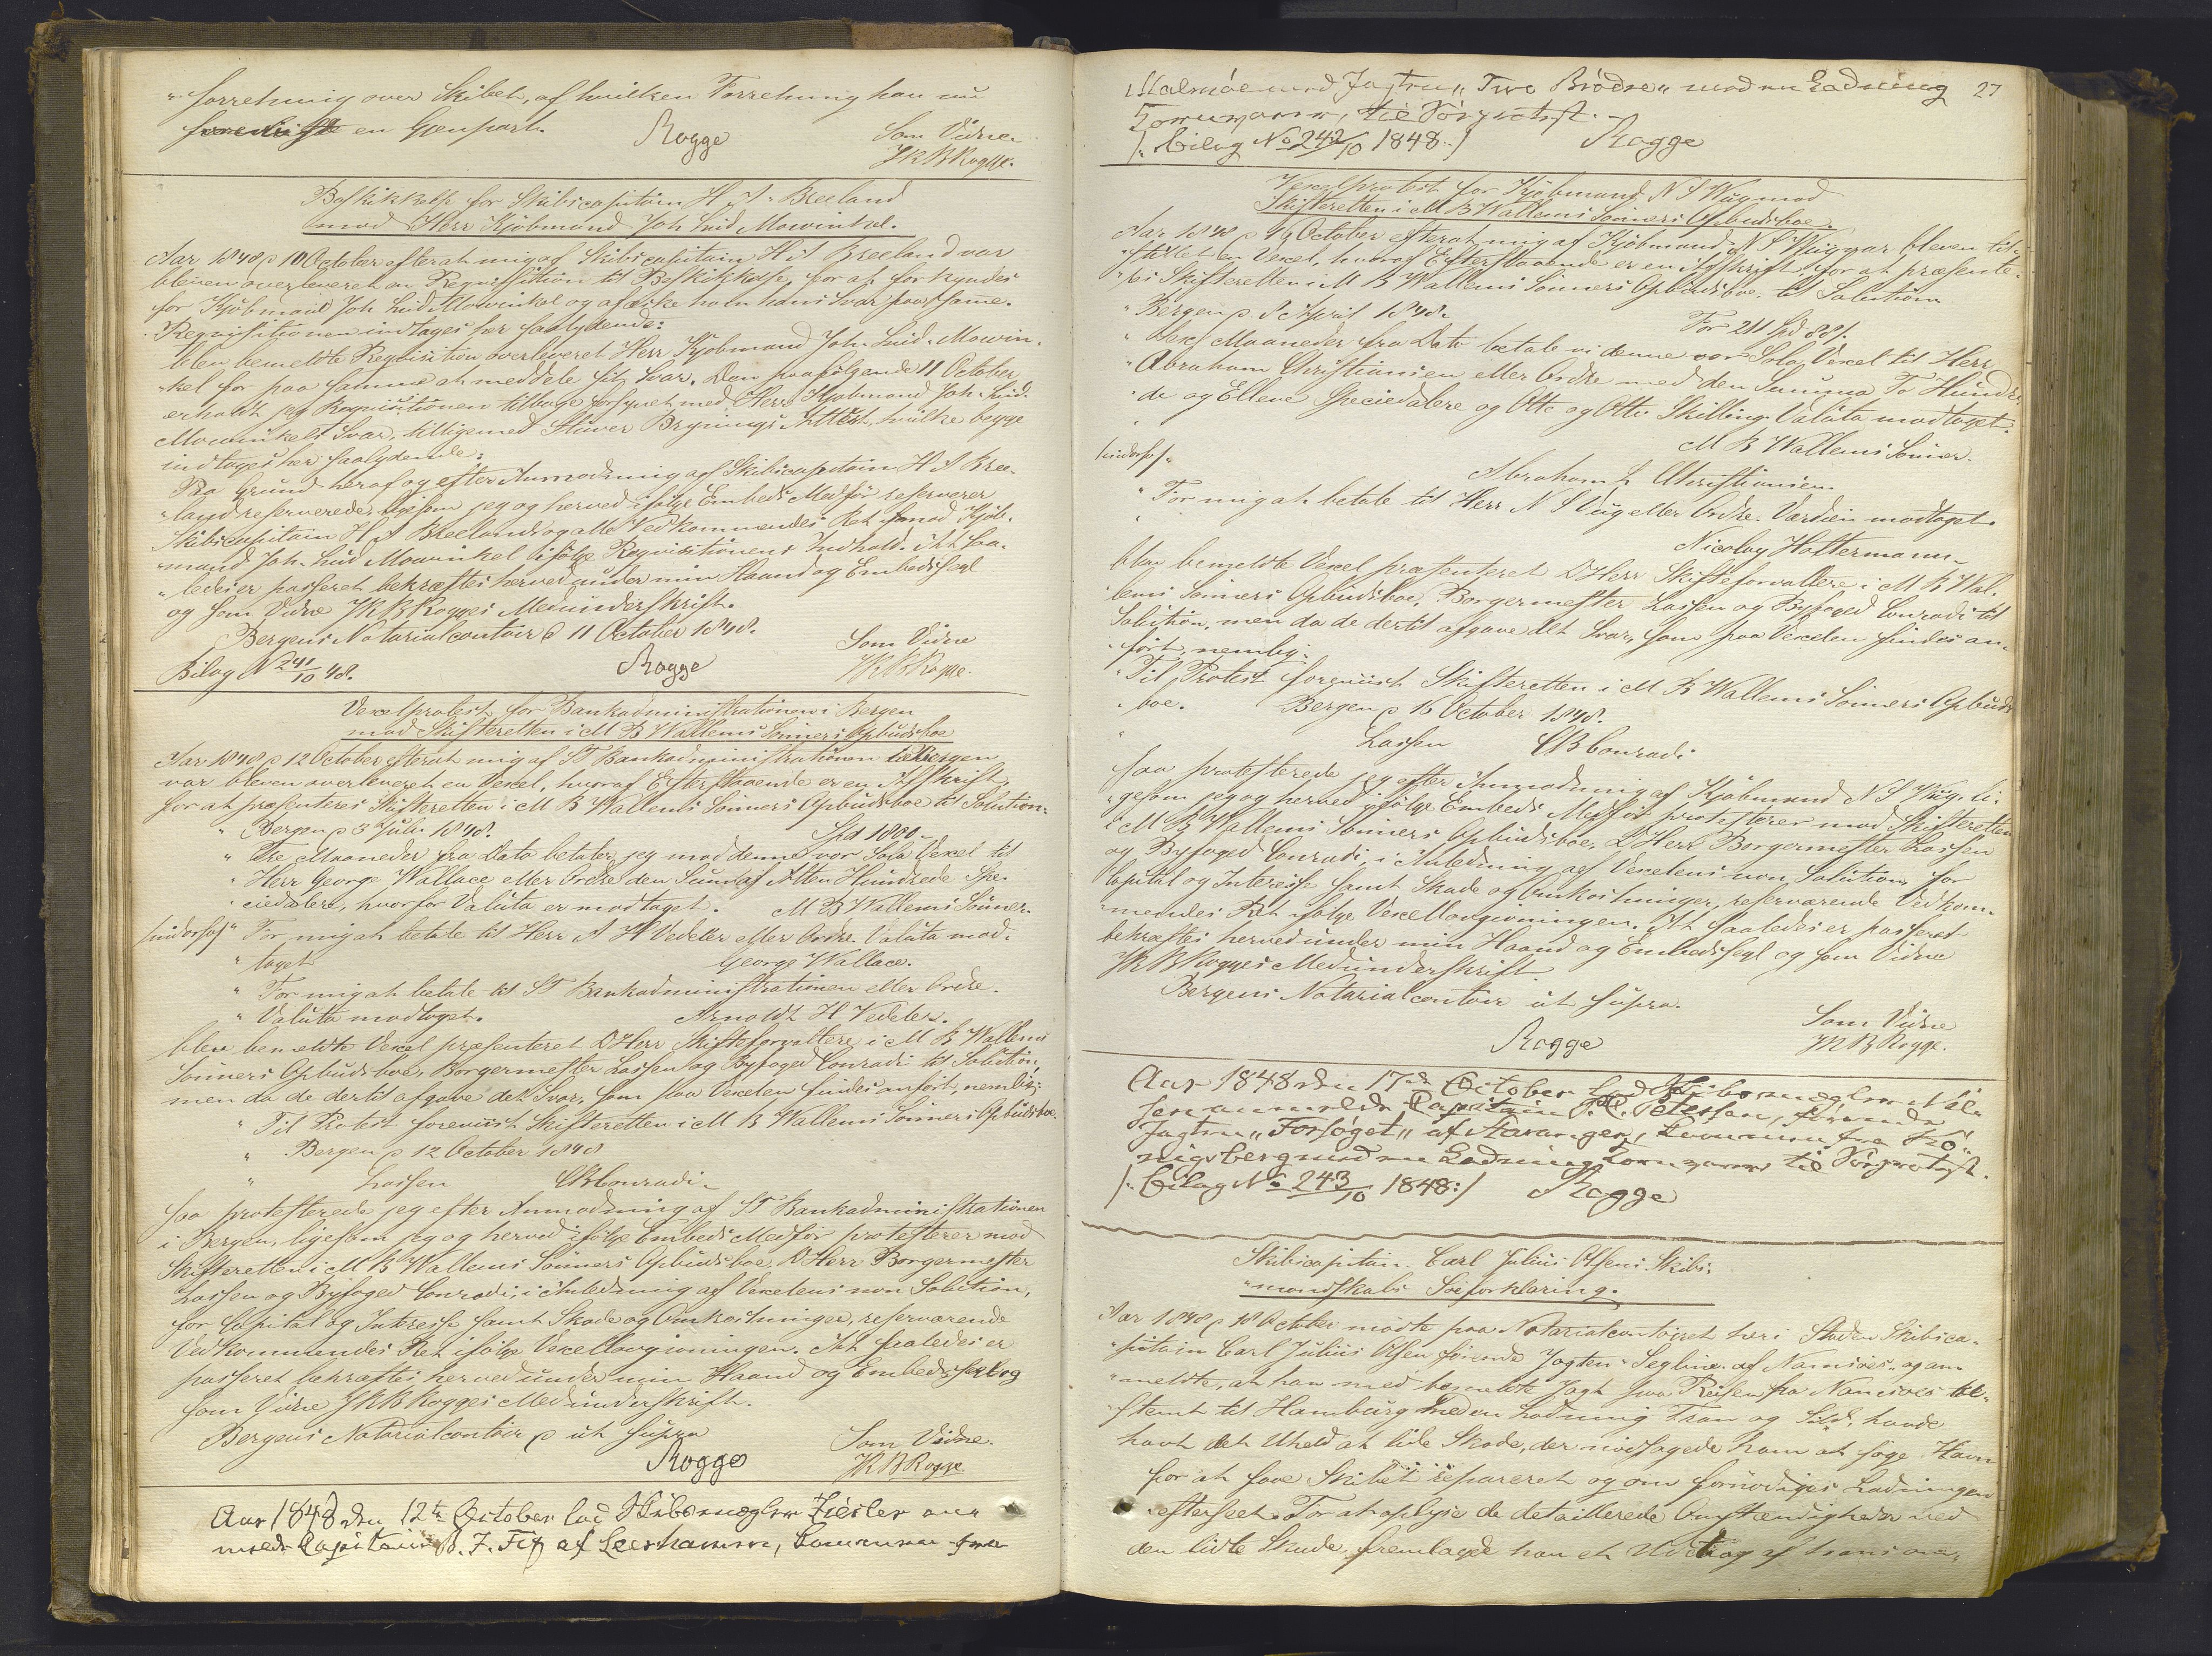 "forretning over Skibet, af hvilken Forretning han nu
en Gjenpart.
Rogge
Som Vidne
J K B Rogge.
Beskikkelse for Skibscapitain H A Breeland
mod Herr Kjøbmand Joh Lud Mowinkel.
Aar 1848 d 10 October efterat mig af Skibscapitain H A Breeland var
bleven overleveret en Requisition til Beskikkelse, for at forkyndes
for Kjøbmand Joh Lud Mowinkel og afæske ham hans Svar paa samme.
Requisitionen indtages her saalydende:
blev bemeldte Requisition overleveret Herr Kjøbmand Joh. Lud. Mowin-
"kel for paa samme at meddele sit Svar. Den paafølgende 11 October
erholdt jeg Requisitionen tilbage forsynet med Herr Kjøbmand Joh. Lud.
Mowinkels Svar, tilligemed Stuer Brynings Attest, hvilke begge
indtages her saalydende:
Paa Grund heraf og efter Anmodning af Skibscapitain H A Bree-
"land reserverede ligesom jeg og herved ifølge Embeds Medfør reserverer
Skibscapitain H A Breelands og alle Vedkommendes Ret imod Kjøb-
"mand Joh. Lud Mowinkel ifølge Requisitionens Indhold. At saa-
"ledes er passeret bekræftes herved under min Haand og Embedssegl
og som Vidne J K B Rogges Medunderskrift.
Bergens Notarialcontoir d 11 October 1848.
Som Vidne
Bilag No 241/10 48.
Rogge
J K B Rogge.
Vexelprotest for Bankadministrationen i Bergen
mod Skifteretten i M B Wallems Sønners Opbudsboe
Aar 1848 d 12 October efterat mig af St Bankadministrationen i Bergen
var bleven overleveret en Vexel, hvoraf Efterstaaende er en Afskrift
for at præsenteres Skifteretten i M B Wallems Sønners Opbudsboe til Solution.
" Bergen d 3 Juli 1848.
Spd 1800.
" Tre Maaneder fra Dato betaler jeg mod denne vor Sola Vexel til
" Herr George Wallace eller Ordre den Sum af Atten Hundrede Spe-
" ciedalere, hvorfor Valuta er modtaget.
M B Wallems Sønner.
Indorsos/ " For mig at betale til Herr A H Vedeler eller Ordre. Valuta mod-
" taget
George Wallace.
" For mig at betale til St Bankadministrationen eller Ordre.
" Valuta modtaget.
Arnoldt H Vedeler.
blev bemeldte Vexel præsenteret DHerr Skifteforvaltere i M B Wallems
Sønners Opbudsboe, Borgermester Lassen og Byfoged Conradi til Solution,
men da de dertil afgave det Svar, som paa Vexelen findes anført, nemlig:
" Til Protest foreviist Skifteretten i M B Wallems Sønners Opbudsboe.
" Bergen d 12 October 1848
" Lassen
CBConradi.
saa protesterede jeg efter Anmodning af St Bankadministrationen
i Bergen, ligesom jeg og herved ifølge Embeds Medfør protesterer mod
Skifteretten i M B Wallems Sønners Opbudsboe, DHerr Borgermester
Lassen og Byfoged Conradi, i Anledning af Vexelens non Solution,
for Capital og Interesse samt Skade og Omkostninger, reserverende
Vedkommendes Ret ifølge Vexellovgivningen. At saaledes er
passeret bekræftes herved under min Haand og Embedssegl og
som Vidne J K B Rogges Medunderskrift.
Bergens Notarialcontoir d ut supra
Som Vidne.
Rogge
J K B Rogge
Aar 1848 den 12te October lod Skibsmægler an-
melde Capitain Fix af Leerhamn, kommen fra
27
Malmöe med Jagten "Two Brödre" med en Ladning
Kornvarer, til Söeprotest.
/: Bilag No 242/10 1848 :/
Rogge
Vexelprotest for Kjøbmand N S Wiig mod
Skifteretten i M B Wallems Sønners Opbudsboe.
Aar 1848 d 16 October efterat mig af Kjøbmand N S Wiig var bleven til-
"stillet en Vexel, hvoraf Efterstaaende er en Afskrift, for at præsente-
"res Skifteretten i M B Wallems Sønners Opbudsboe, til Solution
" Bergen d. 8 April 1848.
For 211 Spd 88 ß.
" Sex Maaneder fra Dato betale vi denne vor Sola Vexel til Herr
" Abraham Christiansen eller Ordre med den Summa To Hundre-
" de og Elleve Speciedalere og Otte og Otti Skilling. Valuta modtaget.
M B Wallems Sønner.
Indorsos/"
Abraham Christiansen.
" For mig at betale til Herr N S Wiig eller Ordre. Værdien modtaget.
"
Nicolay Holtermann.
blev bemeldte Vexel præsenteret DHerr Skifteforvaltere i M B Wal-
lems Sønners Opbudsboe, Borgermester Lassen og Byfoged Conradi til
Solution, men da de dertil afgave det Svar, som paa Vexelen findes an-
"ført, nemlig:
" Til Protest foreviist Skifteretten i M B Wallems Sønners Opbuds
" boe.
Bergen d 16 October 1848.
" Lassen
CBConradi
saa protesterede jeg efter Anmodning af Kjøbmand N S Wiig, li-
"gesom jeg og herved ifølge Embeds Medfør protesterer mod Skifteretten
i M B Wallems Sønners Opbudsboe, DHerr Borgermester Lassen
og Byfoged Conradi, i Anledning af Vexelens non Solution, for
Capital og Interesse samt Skade og Omkostninger, reserverende Vedkom-
"mendes Ret ifølge Vexellovgivningen. At saaledes er passeret
bekræftes herved under min Haand og Embedssegl og som Vidne
J K B Rogges Medunderskrift
Bergens Notarialcontoir ut supra.
Som Vidne
Rogge
J K B Rogge.
Aar 1848 den 17de October lod Skibsmægler Niel-
sen anmelde Capitain Petersen, førende
Jagten "Forsöget" af Stavanger, kommen fra Kö-
nigsberg med en Ladning Kornvarer til Söeprotest.
/: Bilag No 243/10 1848 :/
Rogge
Skibscapitain Carl Julius Olsens Skibs-
"mandskabs Søeforklaring.
Aar 1848 d 18 October mødte paa Notarialcontoiret her i Staden Skibsca-
"pitain Carl Julius Olsen førende Jagten "Segline" af Namsoes, og an-
"meldte, at han med bemeldte Jagt paa Reisen fra Namsoes be-
"stemt til Hamburg med en Ladning Tran og Sild, havde
havt det Uheld at lide Skade, der nødsagede ham at søge Havn
for at faae Skibet repareret og om fornødiges Ladningen
efterseet. For at oplyse de detaillerede Omstændigheder ved
den lidte Skade, fremlagde han et Udtog af